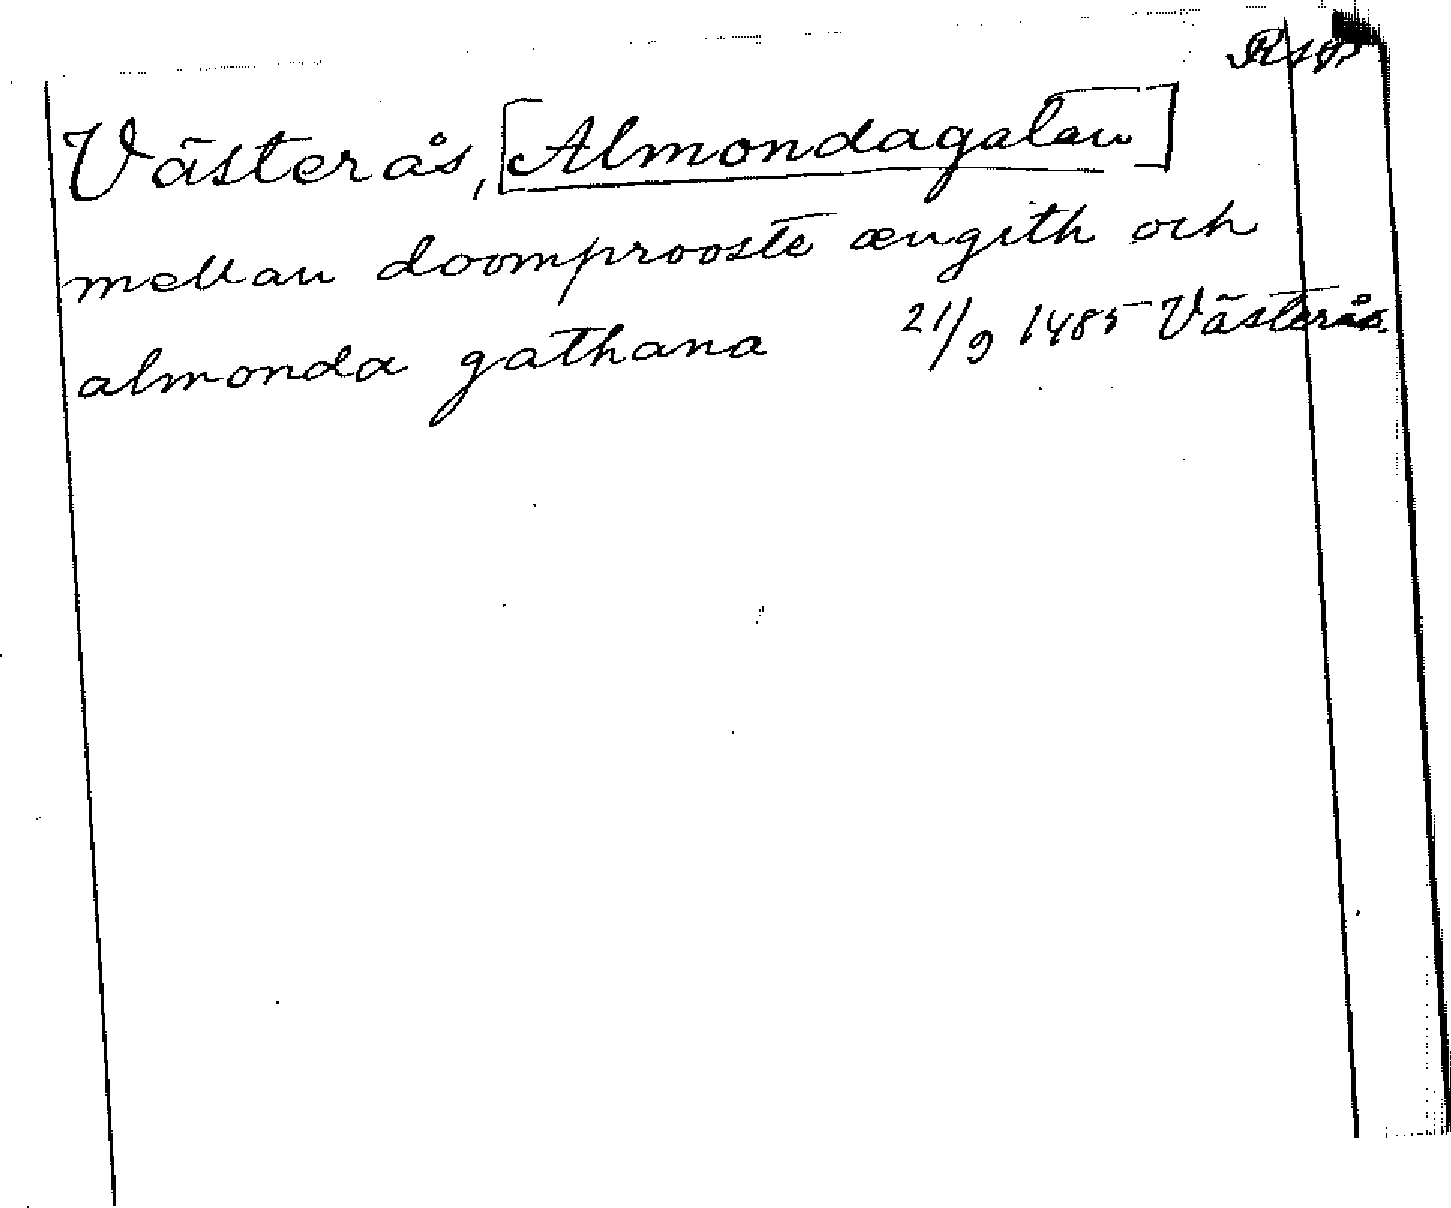 Rsp
Västerås, [Almondagatan]
mellan doomprooste ængith och
almonda gathana 21/9 1485 Västerås